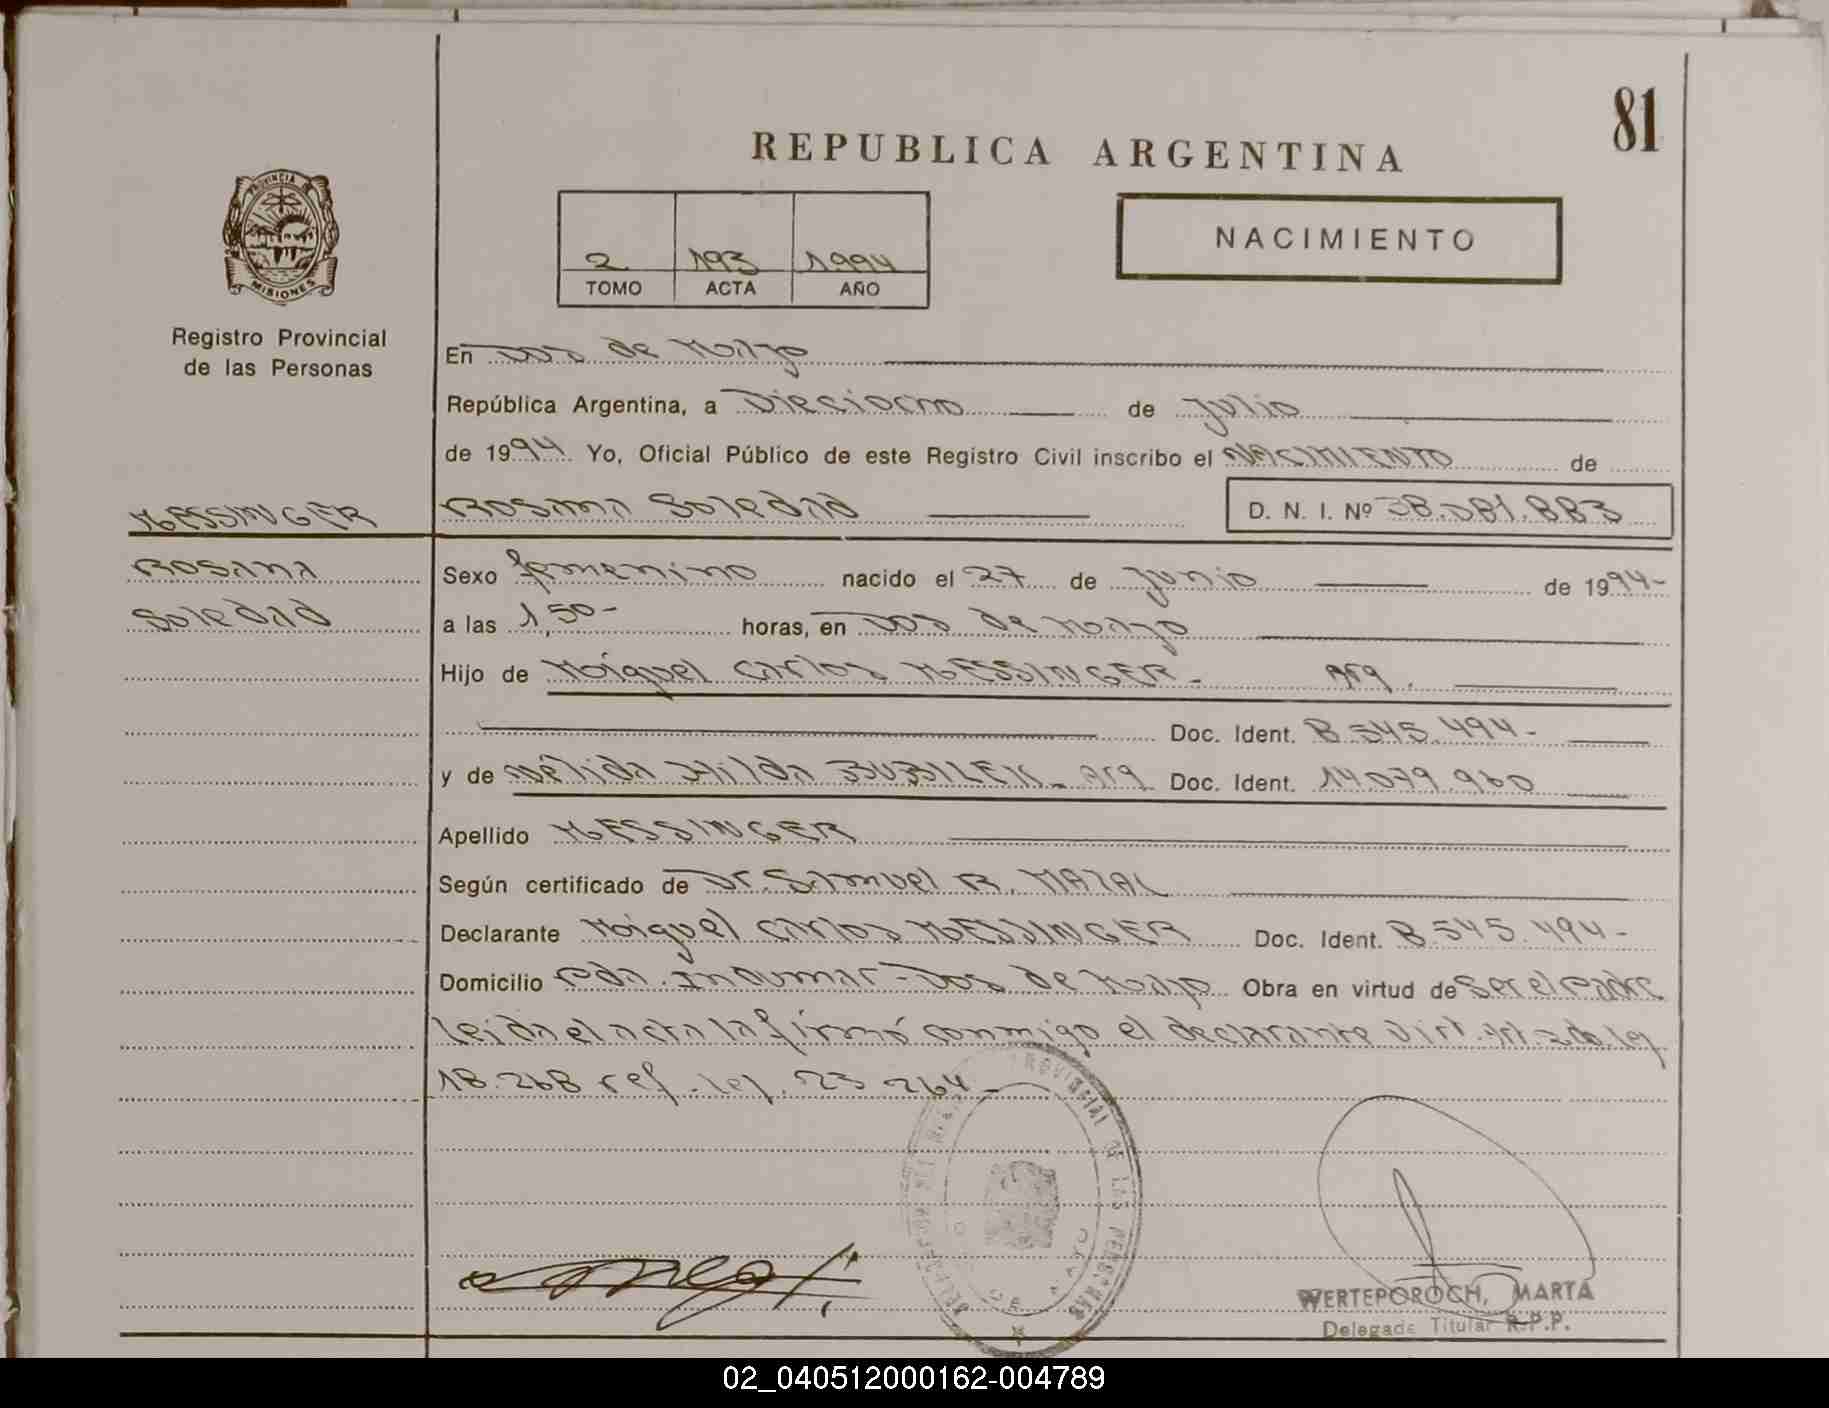 81
REPUBLICA ARGENTINA
NACIMIENTO
2 193 1994
TOMO ACTA AÑO
PROVINCIA DE
MISIONES
Registro Provincial
de las Personas
En Dos de Mayo
República Argentina, a Dieciocho de Julio
de 1994 Yo, Oficial Público de este Registro Civil inscribo el NACIMIENTO de
MESSINGER
Rosana Soledad D. N. I. Nº 38.081.883
Rosana
Soledad
Sexo femenino nacido el 27 de Junio de 1994-
a las 1,50- horas, en Dos de Mayo
Hijo de Miguel Carlos MESSINGER- Arg.
Doc. Ident. 8.545.494-
y de Nélida Hilda BUBILEK- Arg Doc. Ident. 14.079.960
Apellido MESSINGER
Según certificado de Dr. Samuel R. MAZAL
Declarante Miguel Carlos MESSINGER Doc. Ident. 8.545.494-
Domicilio Pda. - Dos de Mayo Obra en virtud de Ser el Padre
leida el acta la firmó conmigo el declarante Art. 2 de ley
18.268 ref. ley. 23.264-
PROVINCIAL DE LAS PERSONAS
WERTEPOROCH, MARTA
Delegada Titular R.P.P.
02_040512000162-004789